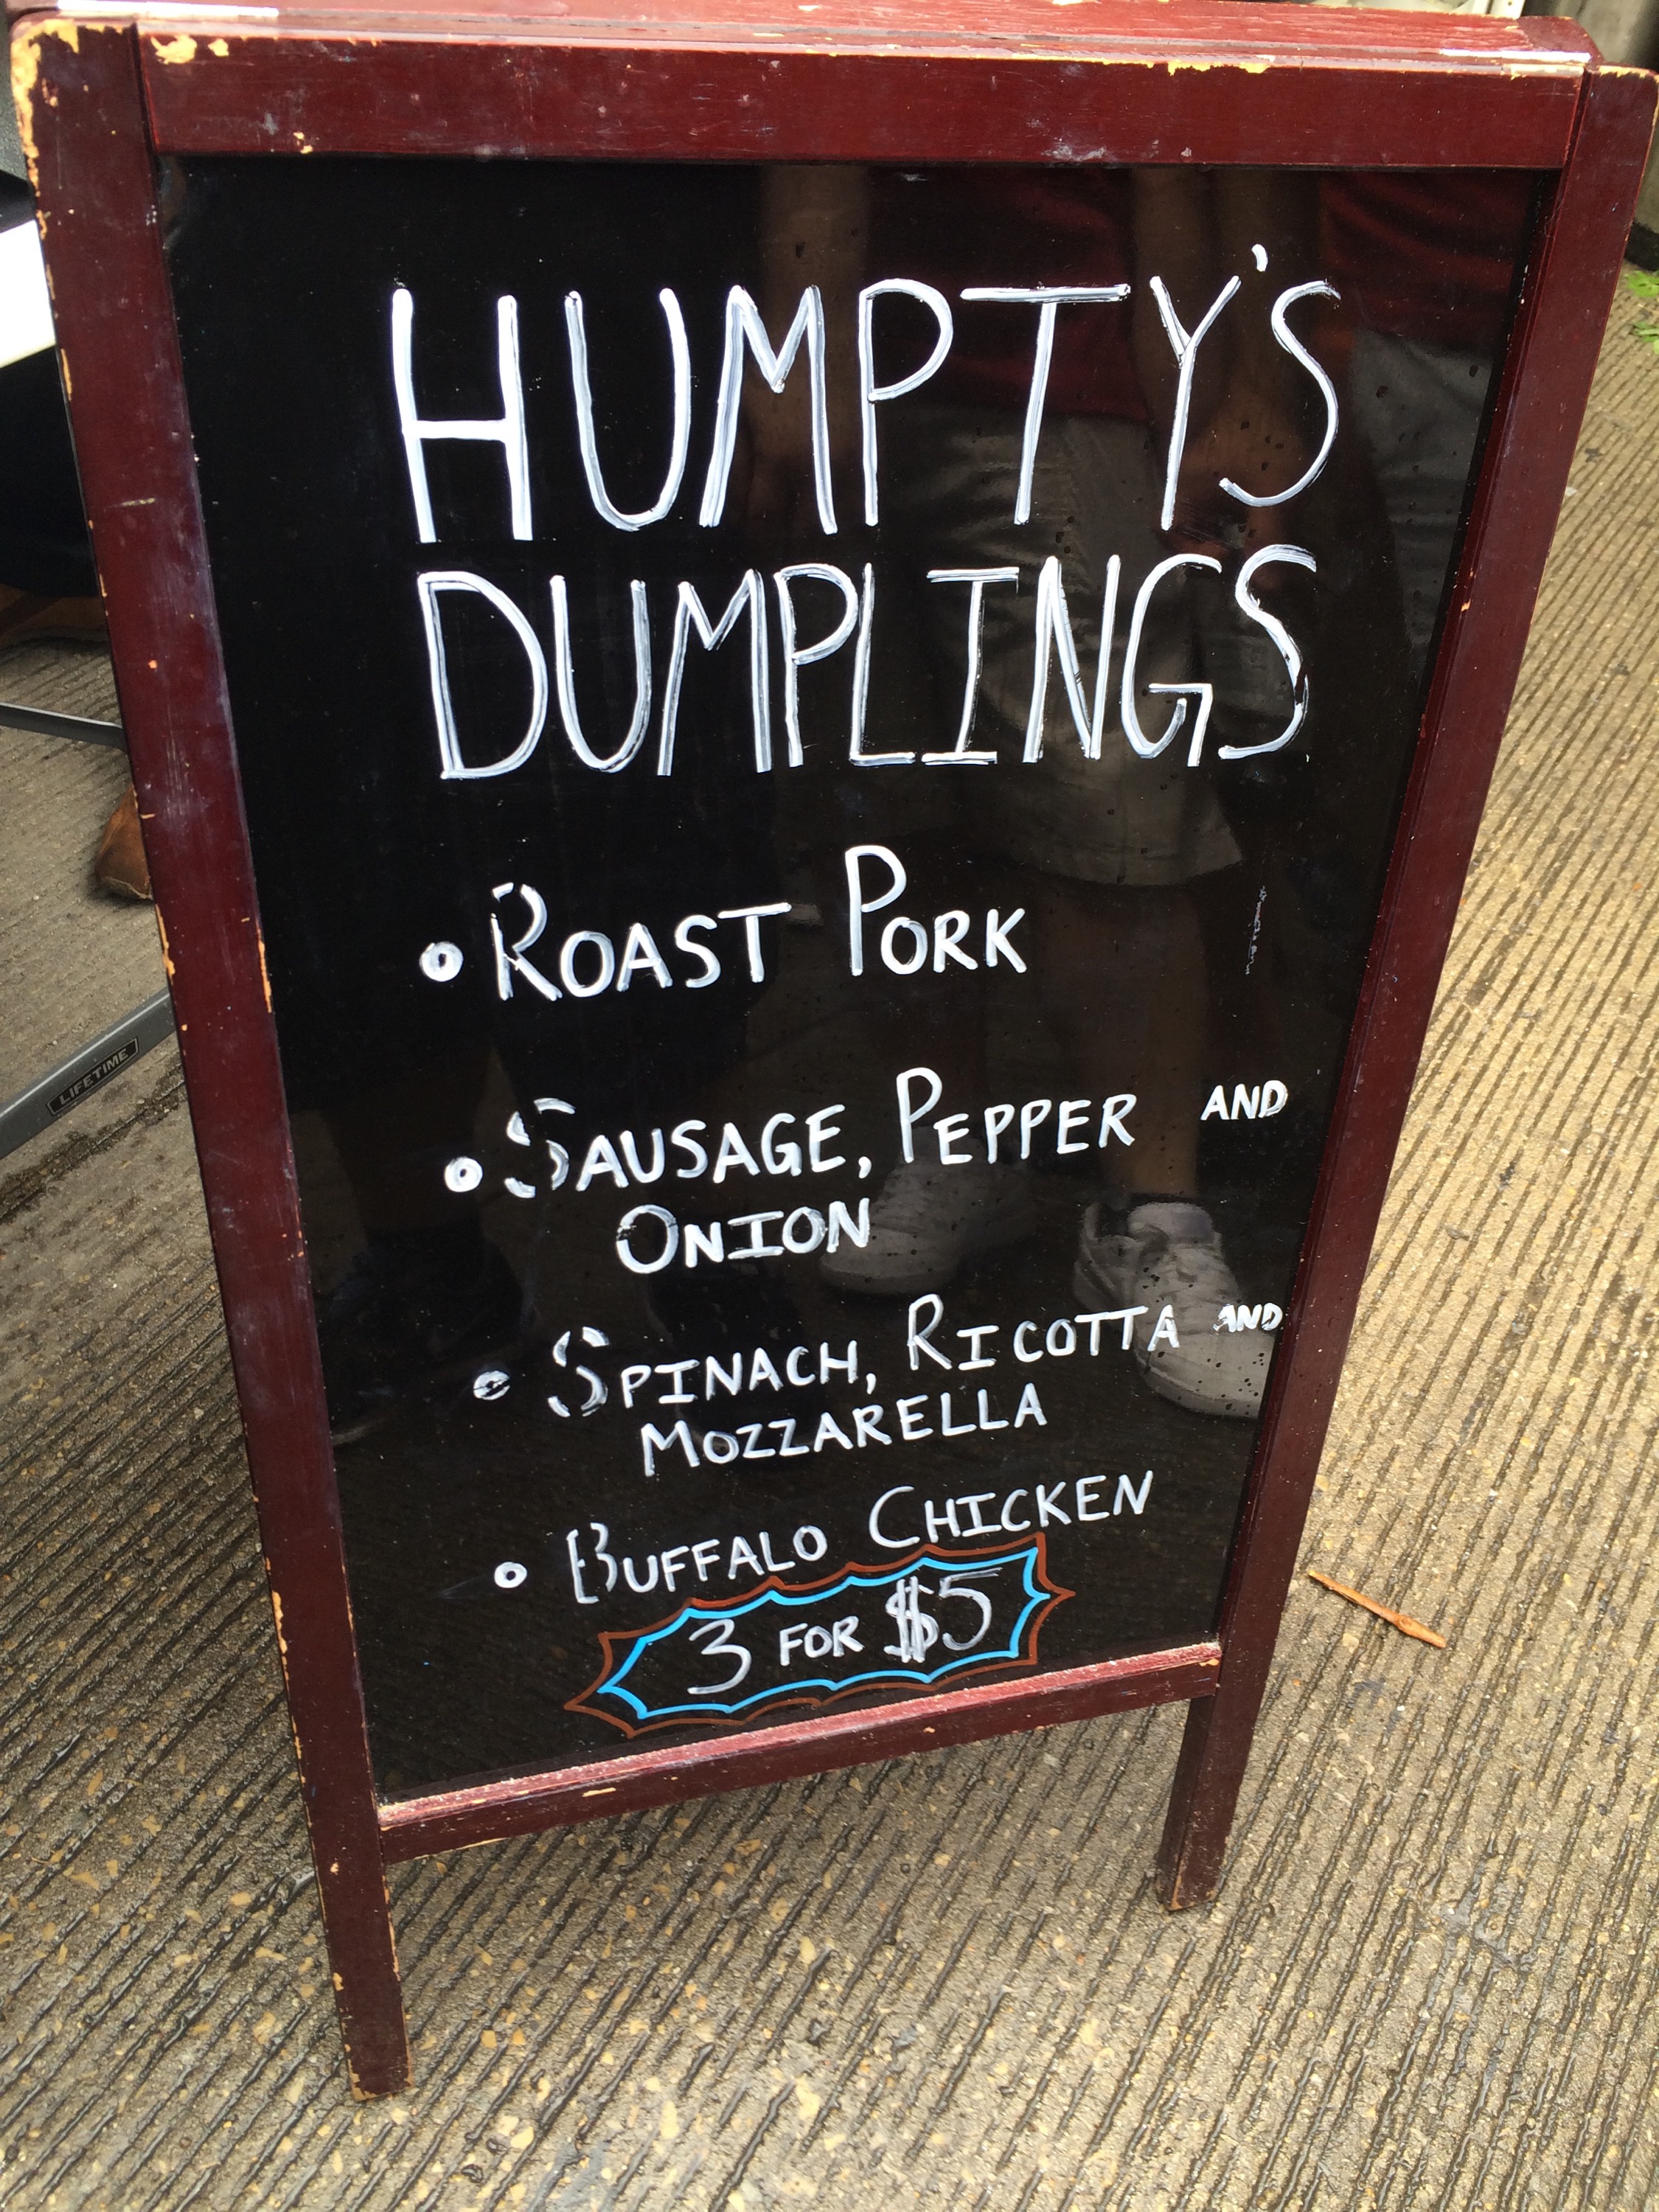 HUMPTY'S
DUMPLINGS
• ROAST PORK
• SAUSAGE, PEPPER AND
ONION
• SPINACH, RICOTTA AND
MOZZARELLA
• BUFFALO CHICKEN
3 FOR $5
LIFETIME